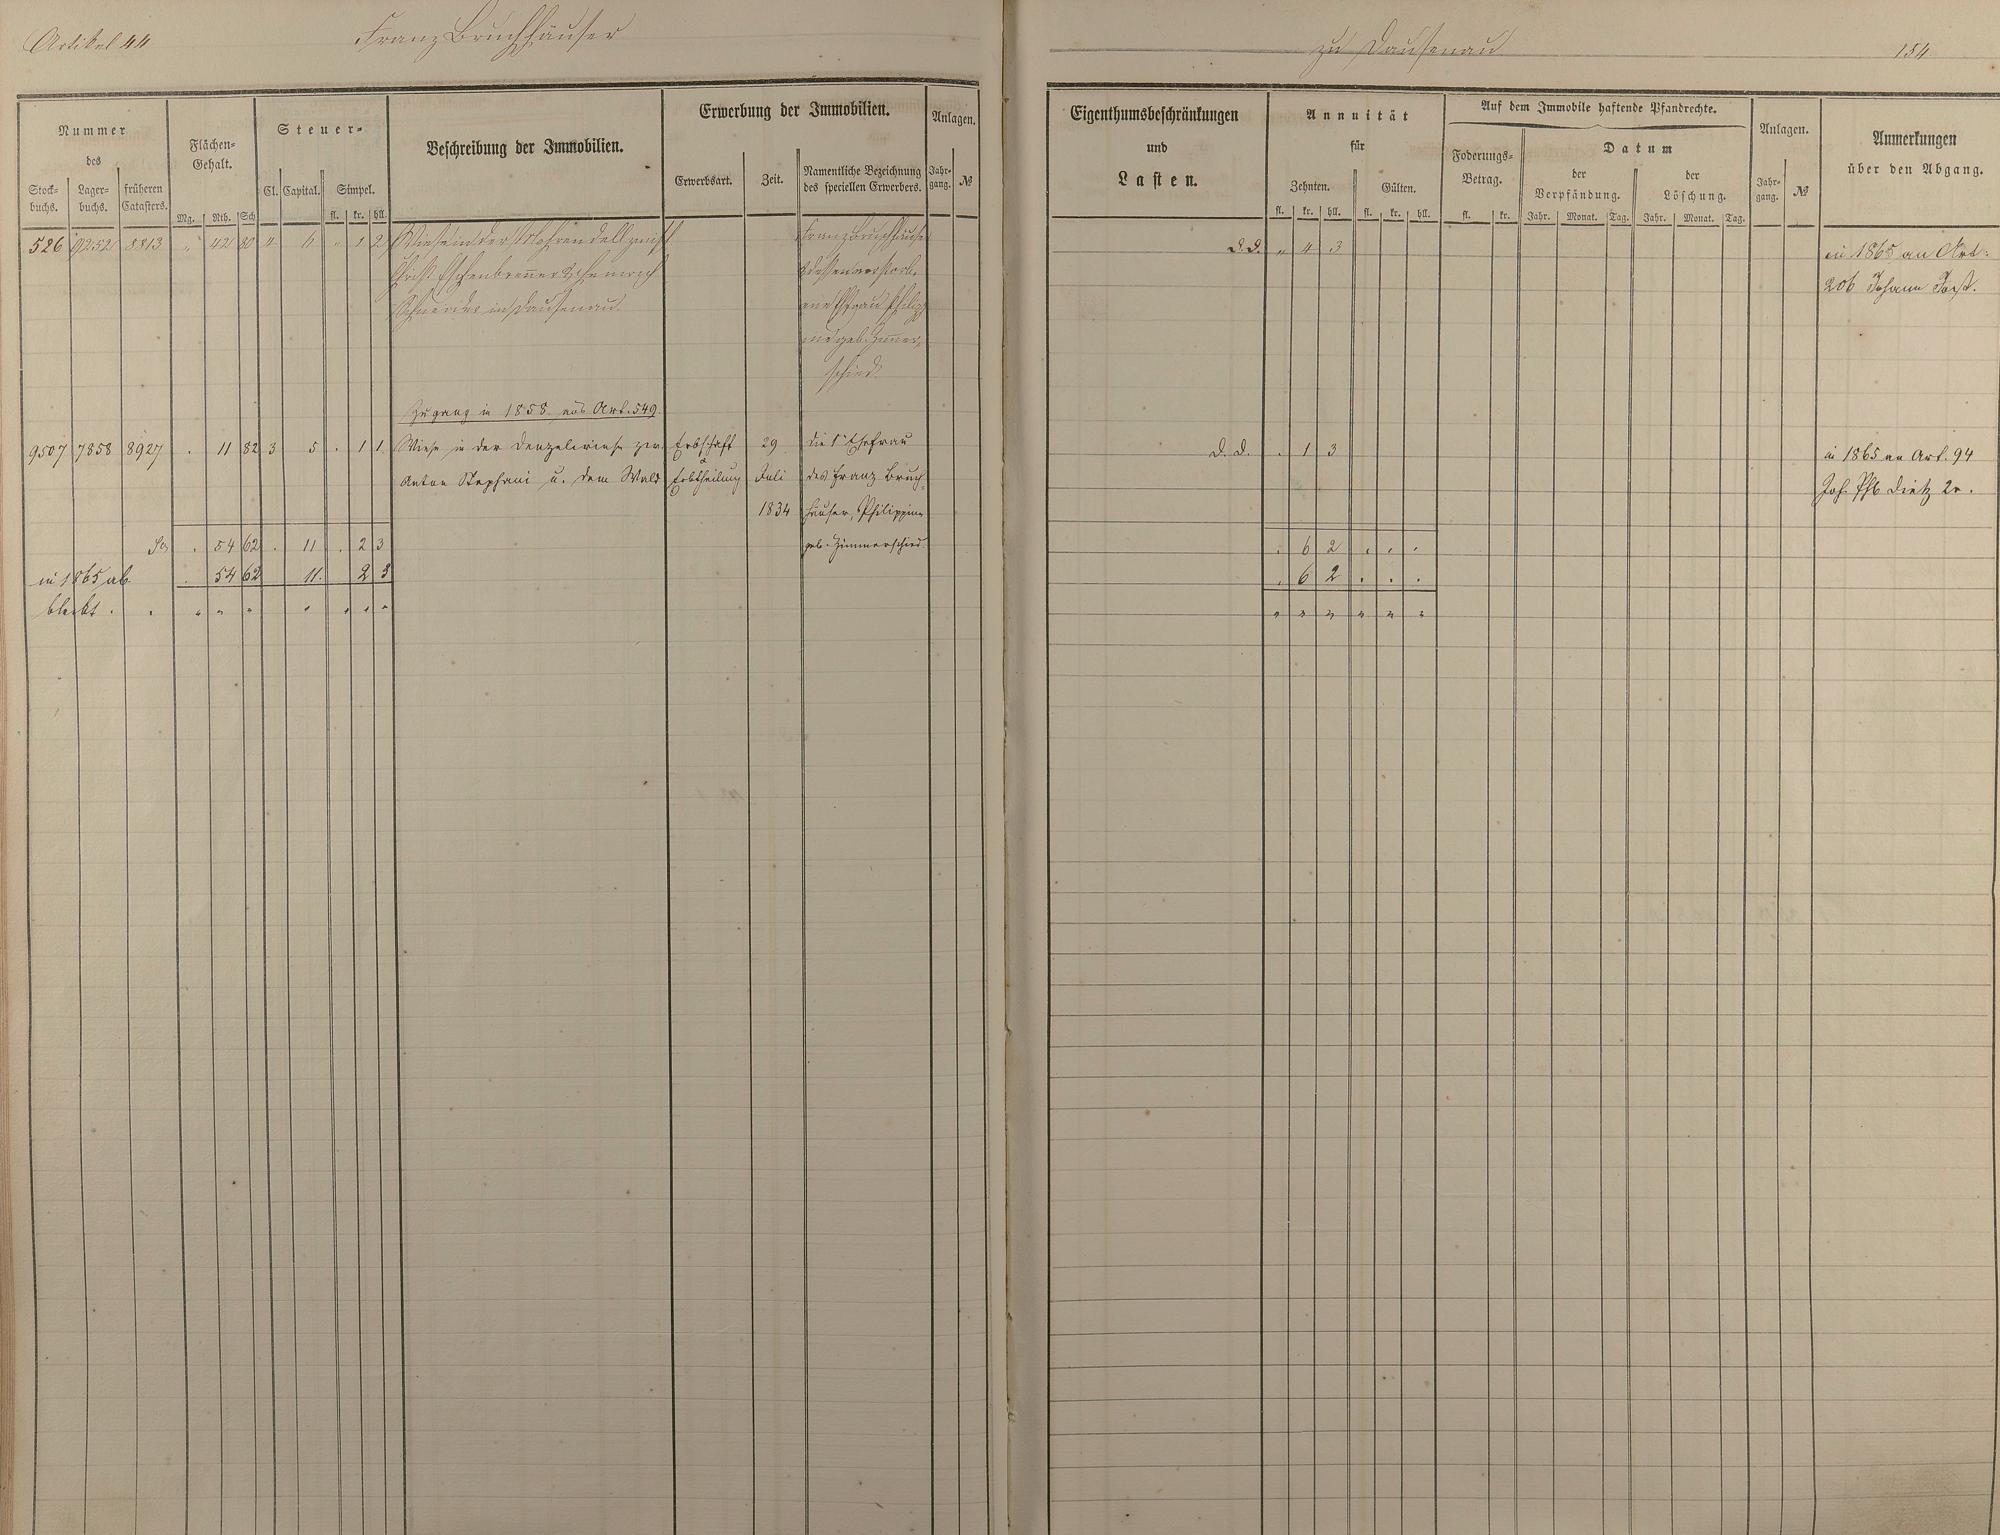 Artikel 44 Franz Bruchhäuser
zu Dausenau 154
Nummer
des
Stock-
buchs.
Lager-
buchs.
früheren
Catasters.
Flächen-
Gehalt.
Mg. Rth. Sch
Steuer-
Cl. Capital. Simpel.
fl. kr. hll.
Beschreibung der Immobilien.
Erwerbung der Immobilien.
Erwerbsart. Zeit.
Namentliche Bezeichnung
des speciellen Erwerbers.
Anlagen.
Jahr-
gang. №
Eigenthumsbeschränkungen
und
Lasten.
Annuität
für
Zehnten. Gülten.
fl. kr. hll. fl. kr. hll.
Auf dem Immobile haftende Pfandrechte.
Foderungs-
Betrag.
fl. kr.
Datum
der
Verpfändung.
Jahr. Monat. Tag.
der
Löschung.
Jahr. Monat. Tag.
Anlagen.
Jahr-
gang. №
Anmerkungen
über den Abgang.
526 9252 8813 " 42 80 4 6 " 1 2 Wiese in der
Franz Bruchhäuser
Christ. Eschenbrenner
dessen verstorb.
Schneider in Dausenau.
ene Ehefrau Philipp
ine geb. Zimmer,
schied.
d. d. " 4 3 in 1865 an Art:
206 Johann Jost.
Zugang in 1858 aus Art. 549.
9507 7858 8927 . 11 82 3 5 . 1 1 Wiese in der Denzelwiese zw. Erbschaft 29 die 1te Ehefrau
Anton Stephani u. dem Wald Erbtheilung Juli des Franz Bruch
1834 häuser, Philippine
geb. Zimmerschied.
d. d. . 1 3 in 1865 an Art. 94
Joh. Phl. Dietz 2r.
Sa . 54 62 . 11 . 2 3 . 6 2 . . .
in 1865 ab . 54 62 11. 2 3 . 6 2 . . .
bleibt . . " " " " " " " " " " " " "